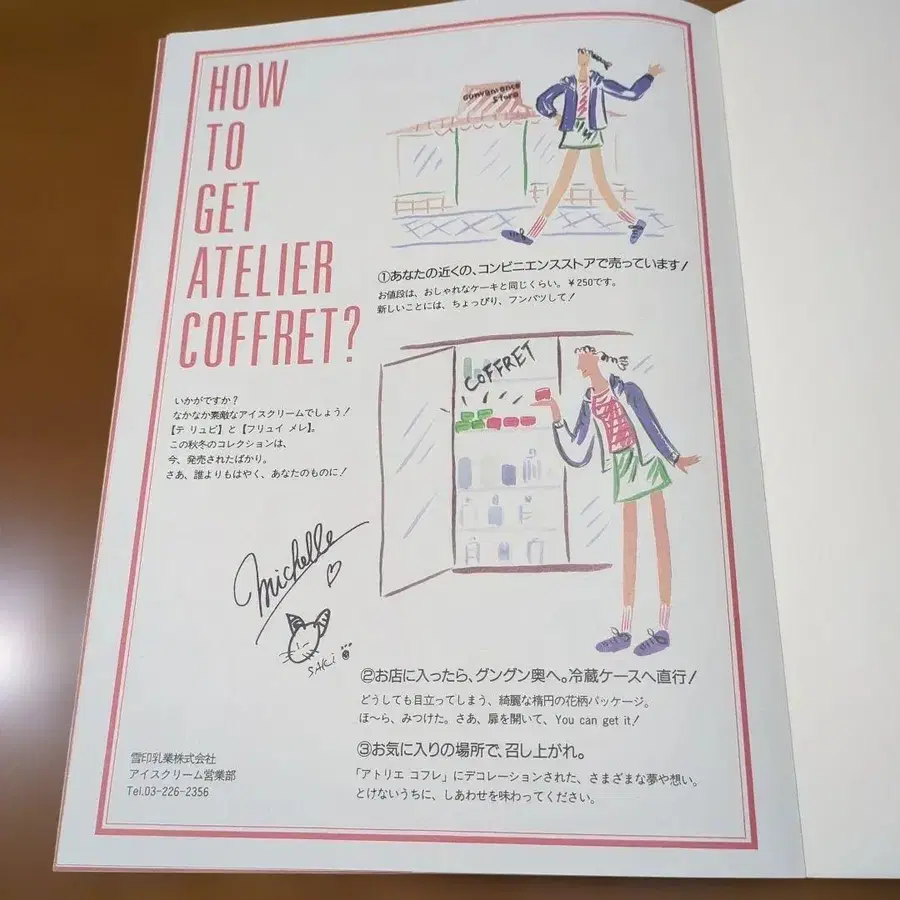 HOW
TO
GET
ATELIER
COFFRET?
いかがですか？
なかなか素敵なアイスクリームでしょう！
【テ リュビ】と【フリュイ メレ】。
この秋冬のコレクションは、
今、発売されたばかり。
さあ、誰よりもはやく、あなたのものに！
Michelle
SAKi
雪印乳業株式会社
アイスクリーム営業部
Tel.03-226-2356
convenience
Store
①あなたの近くの、コンビニエンスストアで売っています！
お値段は、おしゃれなケーキと同じくらい。￥250です。
新しいことには、ちょっぴり、フンパツして！
COFFRET
②お店に入ったら、グングン奥へ。冷蔵ケースへ直行！
どうしても目立ってしまう、綺麗な楕円の花柄パッケージ。
ほ〜ら、みつけた。さあ、扉を開いて、You can get it！
③お気に入りの場所で、召し上がれ。
「アトリエ コフレ」にデコレーションされた、さまざまな夢や想い。
とけないうちに、しあわせを味わってください。